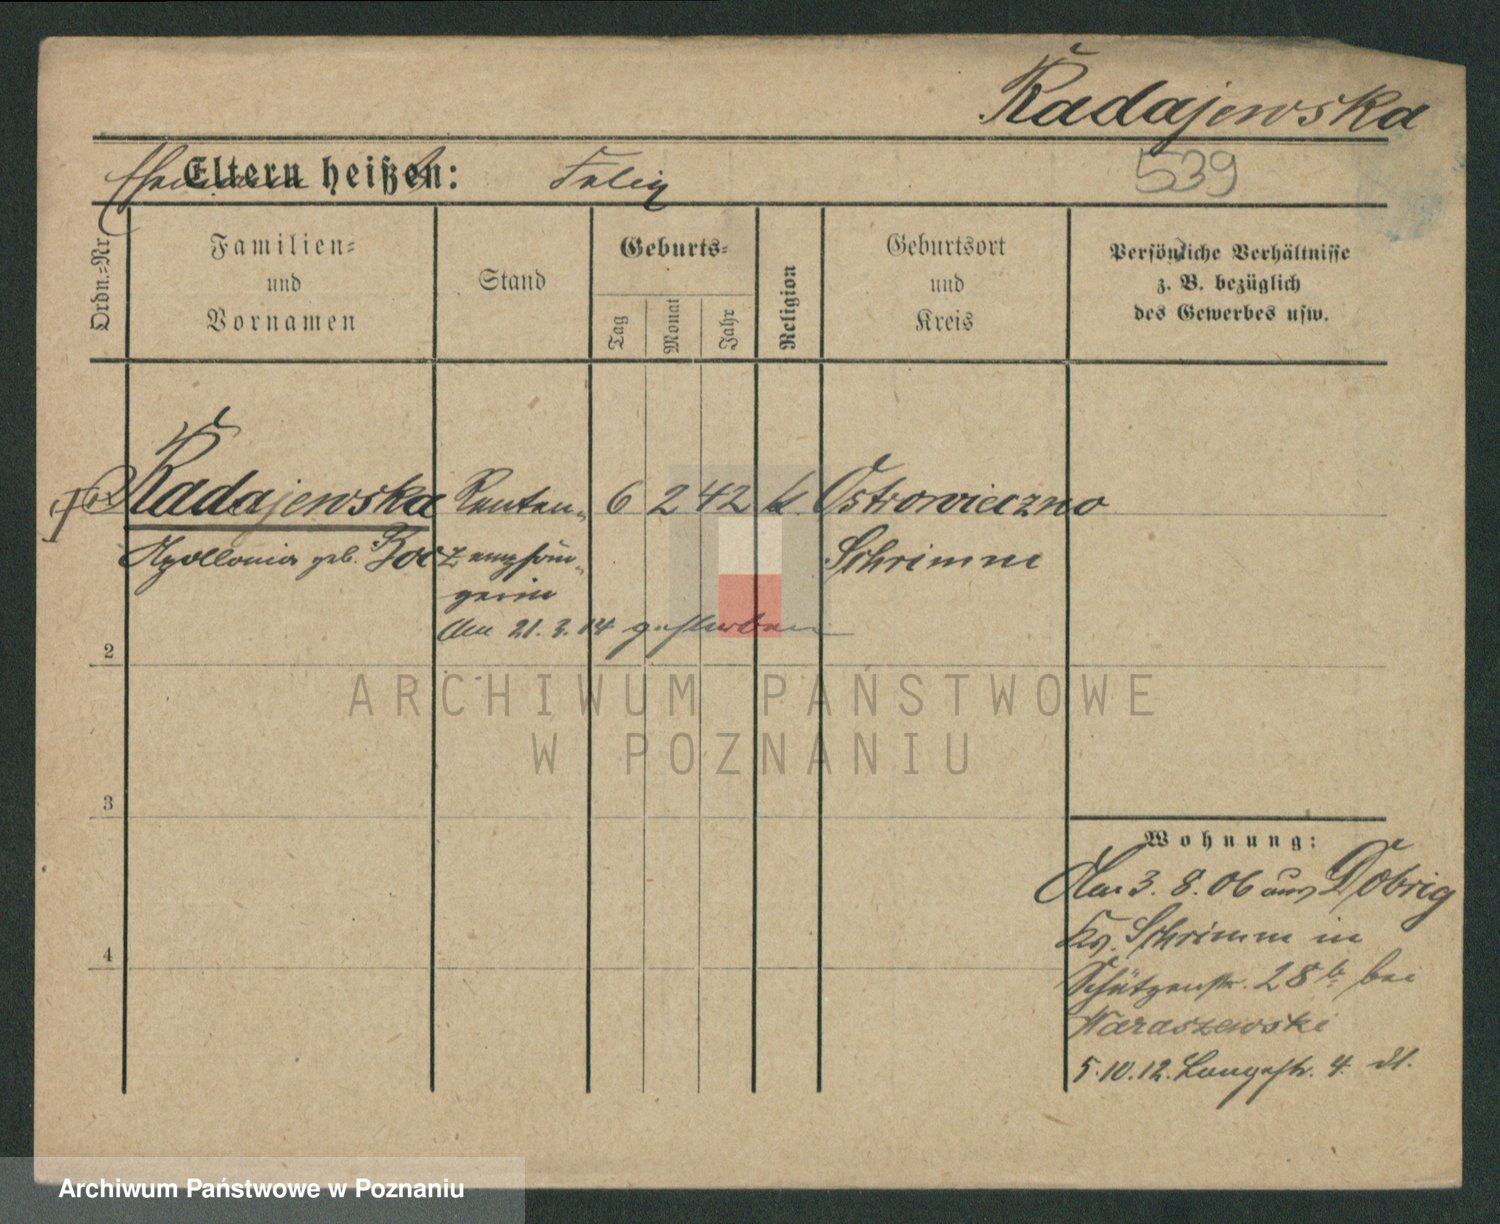 Radajewska
Eltern heißen: Felix
539
Ordn.=Nr.
Familien=
und
Vornamen
Stand
Geburts=
Tag
Monat
Jahr
Religion
Geburtsort
und
Kreis
Persönliche Verhältnisse
z. B. bezüglich
des Gewerbes usw.
Radajewska Renten- 6 2 42 k. Ostrowieczno
Apollonia geb. Bocz empfän- Schrimm
gerin
Am 21.3.14 gestorben
2
ARCHIWUM PAŃSTWOWE
W POZNANIU
3
Wohnung:
Am 3.8.06 aus Dobrig
Kr. Schrimm in
4
Schützenstr. 28 b bei
Naraszewski
5.10.12. Langestr. 4.
Archiwum Państwowe w Poznaniu